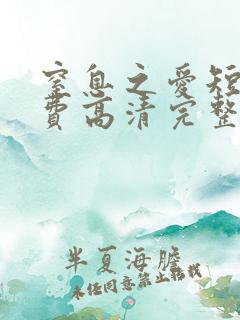 窒息之爱短
费高清完整
半夏海胆
未经同意禁止转载